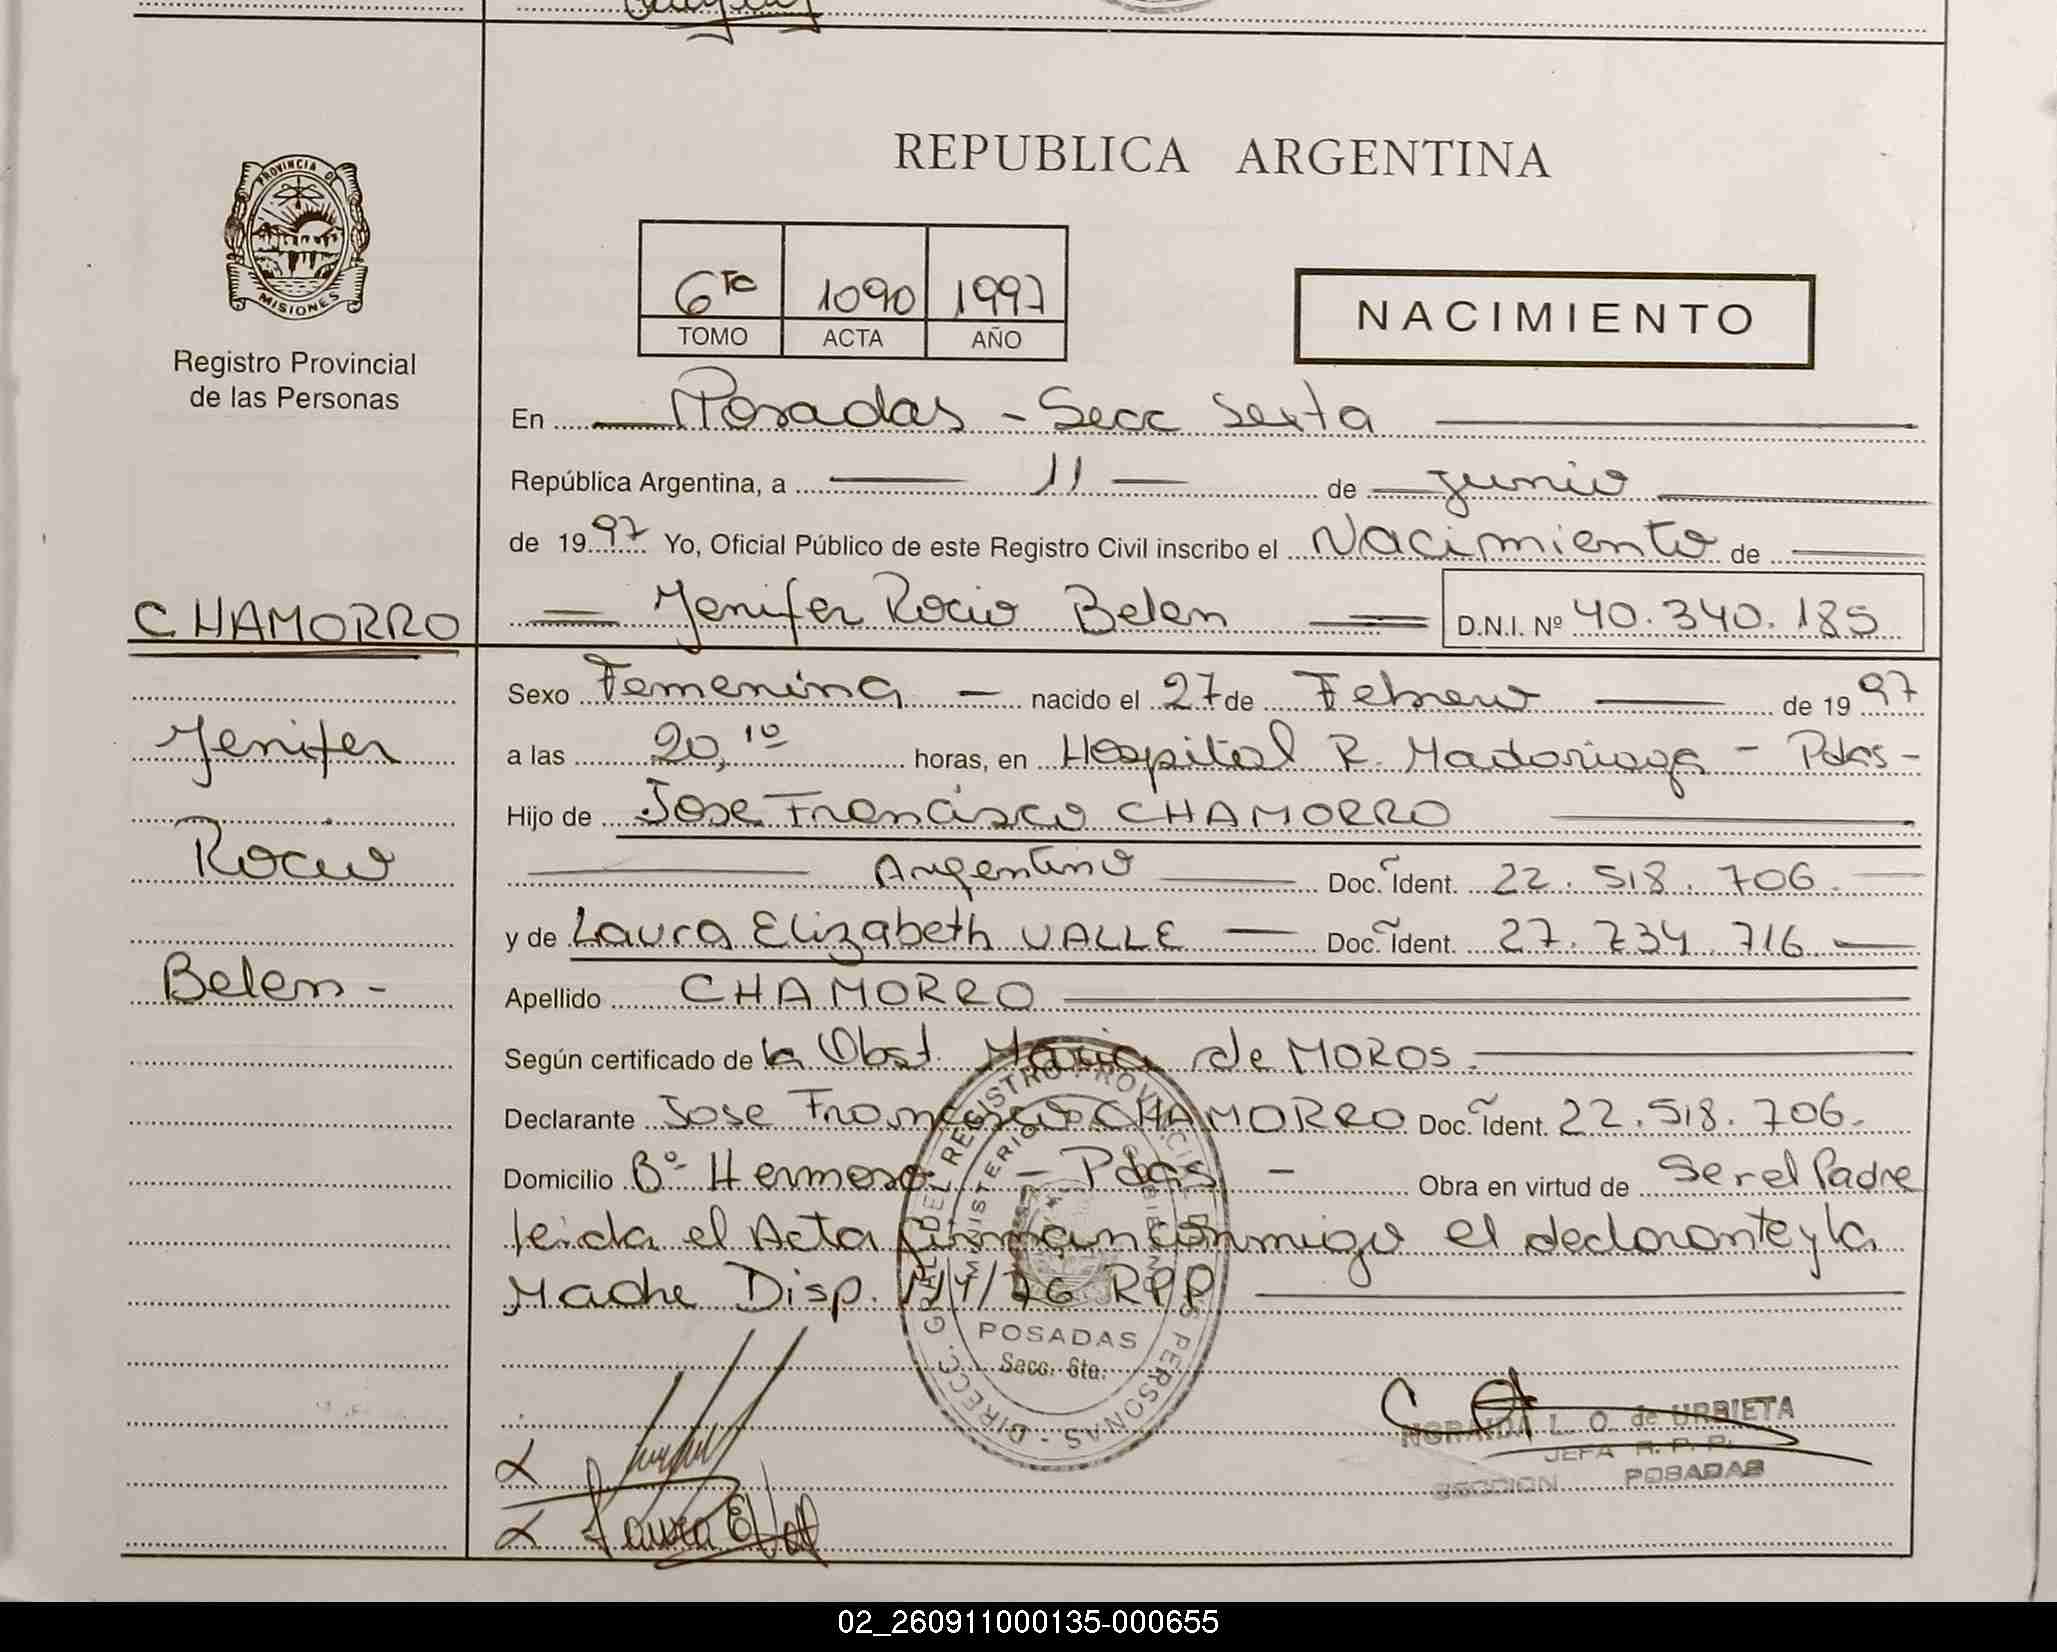 REPUBLICA ARGENTINA
PROVINCIA DE
MISIONES
Registro Provincial
de las Personas
6ta 1090 1997
TOMO ACTA AÑO
NACIMIENTO
En Posadas - Secc Sexta
República Argentina, a 11 de junio
de 1997 Yo, Oficial Público de este Registro Civil inscribo el Nacimiento de
CHAMORRO
Yenifer Rocio Belen D.N.I. Nº 40.340.185
Sexo Femenina - nacido el 27 de Febrero de 1997
Yenifer
a las 20,10 horas, en Hospital R. Madoriaga - Pdas -
Hijo de Jose Francisco CHAMORRO
Rocio
Argentino Doc. Ident. 22.518.706.
y de Laura Elizabeth VALLE - Doc. Ident. 27.734.716
Belen -
Apellido CHAMORRO
Según certificado de la Obst. Maria de MOROS.
Declarante Jose Francisco CHAMORRO Doc. Ident. 22.518.706.
Domicilio Bº Hermoso - Pdas - Obra en virtud de Ser el Padre
leida el Acta firman conmigo el declarante y la
Madre Disp. /76 RPP
DIRECC. GRAL DEL REGISTRO PROVINCIAL DE LAS PERSONAS
MINISTERIO DE GOBIERNO
POSADAS
Secc. 6ta.
L. O. de URBIETA
JEFA R. P. P.
SECCION POSADAS
Laura E
02_260911000135-000655